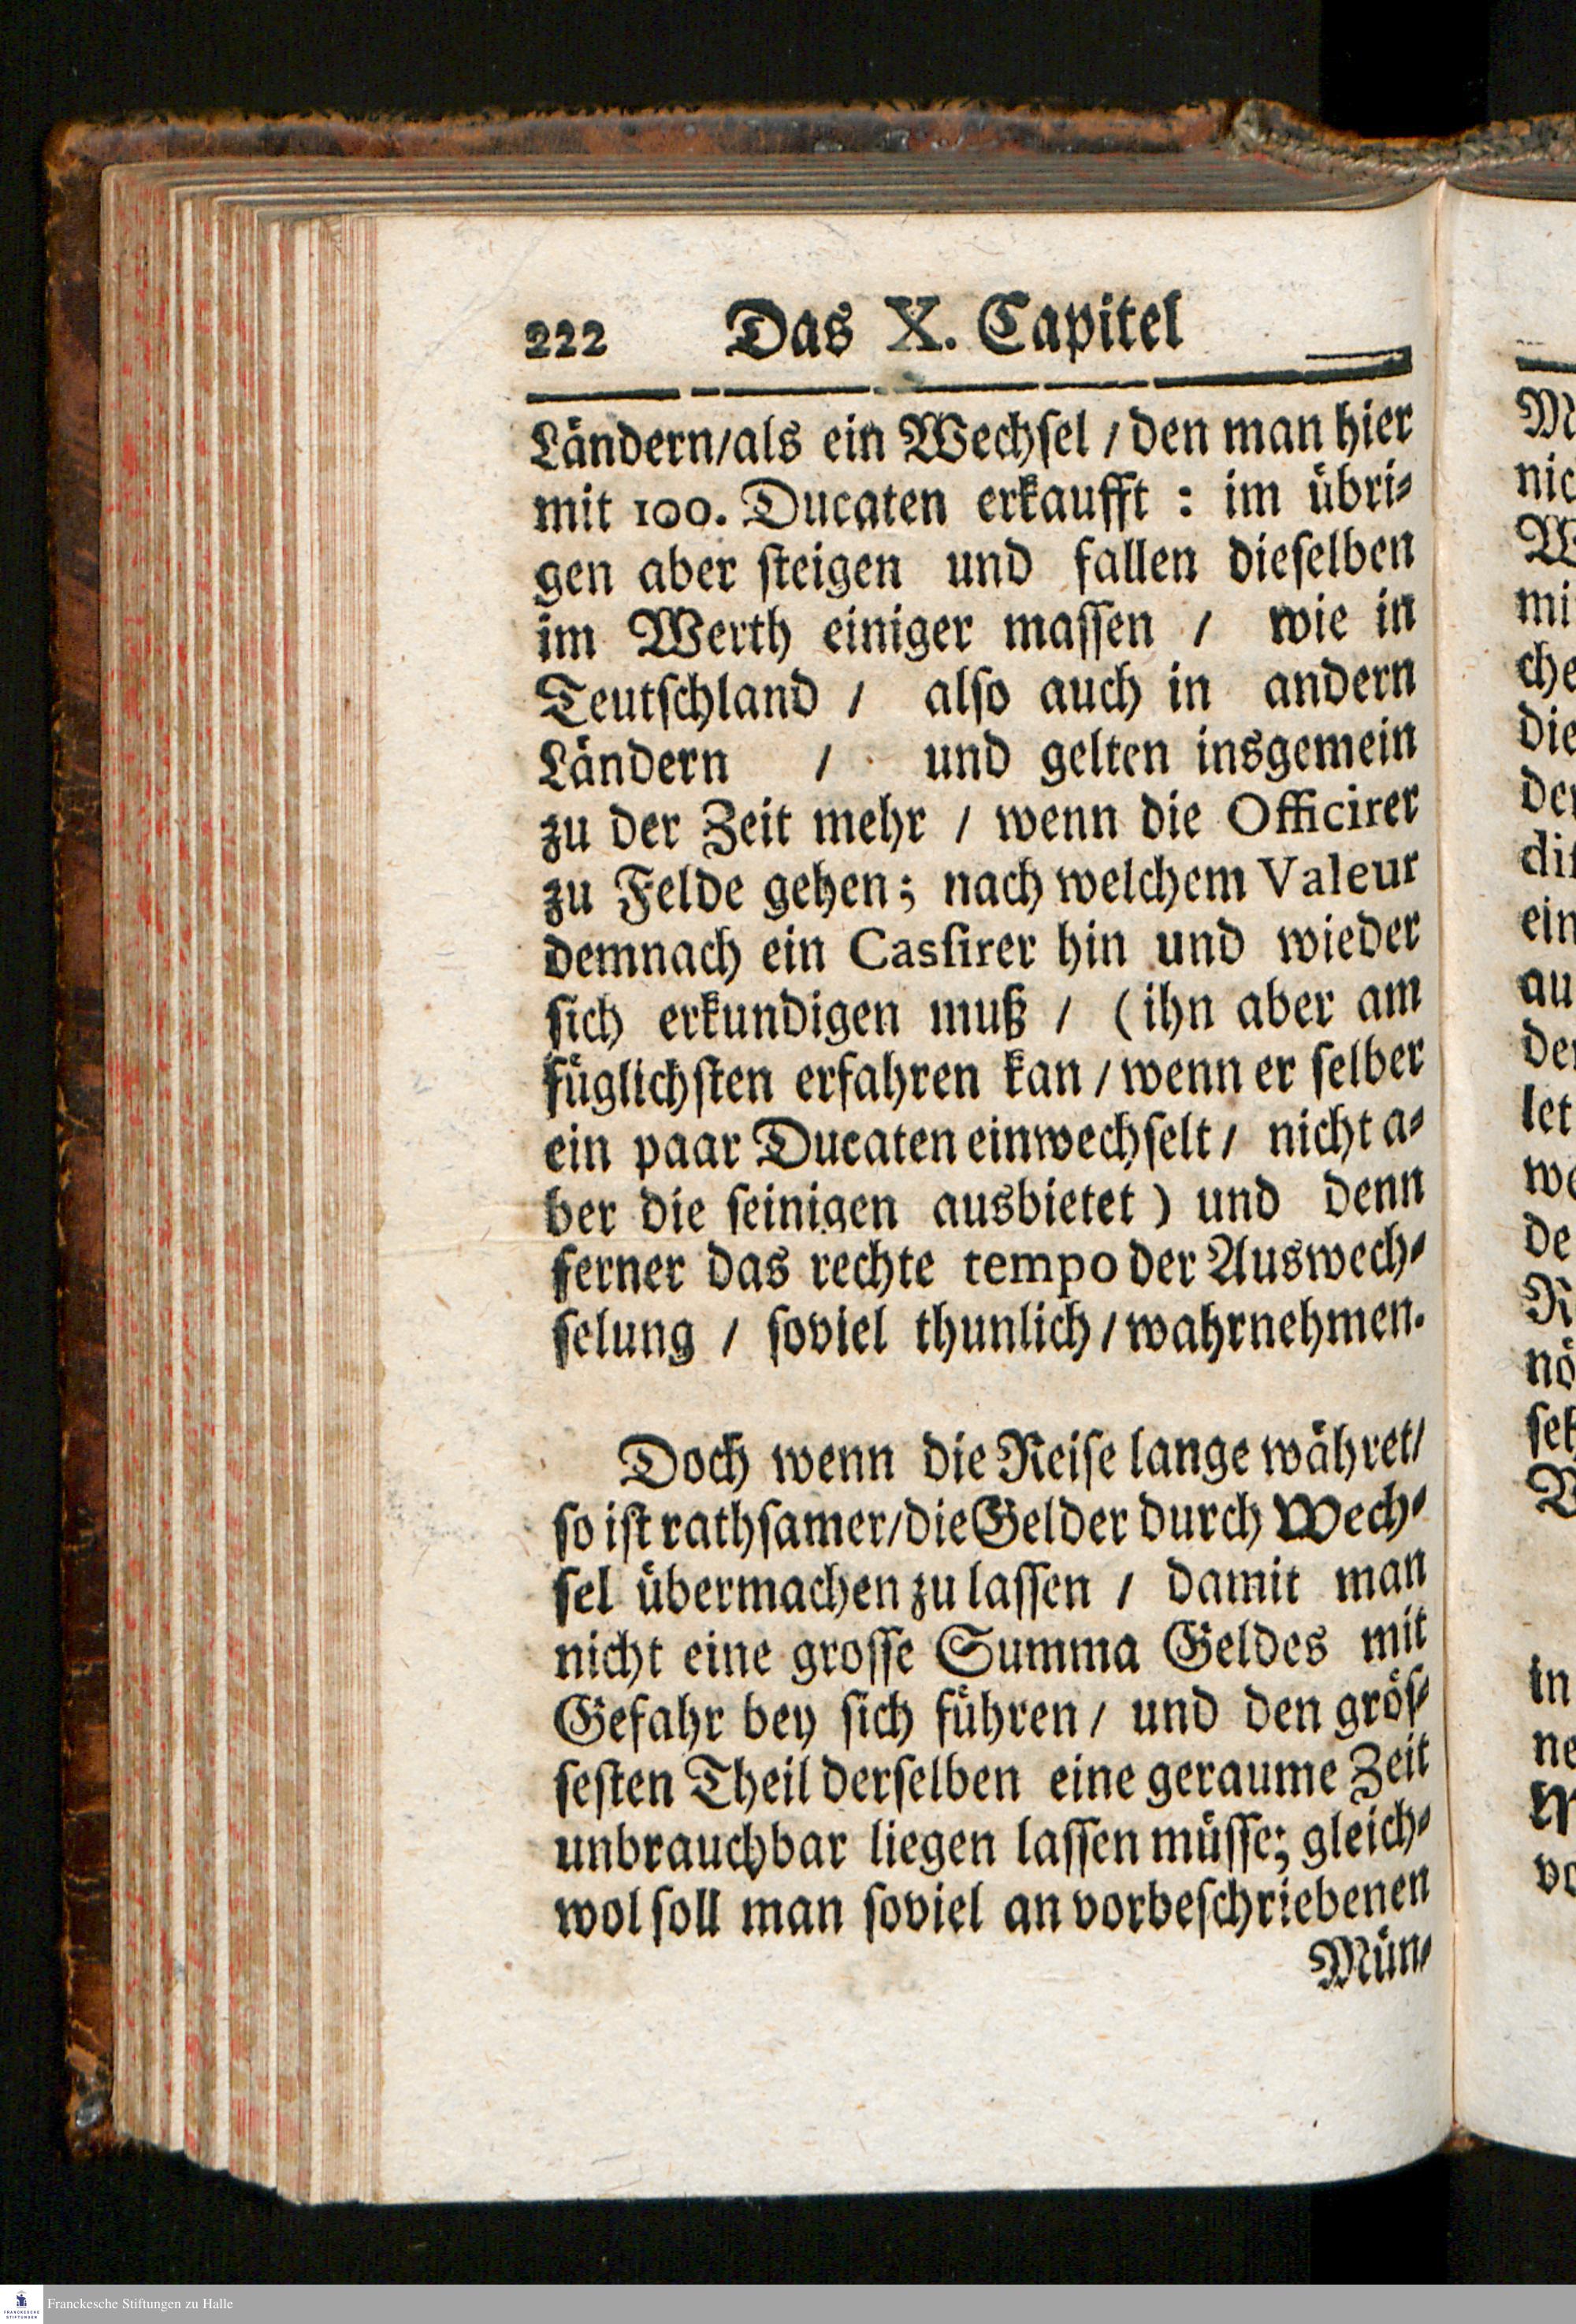 222 Das X. Capitel
Ländern/als ein Wechſel / den man hier
mit 100. Ducaten erkaufft : im übri⸗
gen aber ſteigen und fallen dieſelben
im Werth einiger maſſen / wie in
Teutſchland / alſo auch in andern
Ländern / und gelten insgemein
zu der Zeit mehr / wenn die Officirer
zu Felde gehen; nach welchem Valeur
demnach ein Casſirer hin und wieder
ſich erkundigen muß / (ihn aber am
füglichſten erfahren kan / wenn er ſelber
ein paar Ducaten einwechſelt / nicht a⸗
ber die ſeinigen ausbietet) und denn
ferner das rechte tempo der Auswech⸗
ſelung / ſoviel thunlich / wahrnehmen.
Doch wenn die Reiſe lange währet/
ſo iſt rathſamer/die Gelder durch Wech⸗
ſel übermachen zu laſſen / damit man
nicht eine groſſe Summa Geldes mit
Gefahr bey ſich führen / und den gröſ⸗
ſeſten Theil derſelben eine geraume Zeit
unbrauchbar liegen laſſen müſſe; gleich⸗
wol ſoll man ſoviel an vorbeſchriebenen
Mün⸗
Franckesche Stiftungen zu Halle